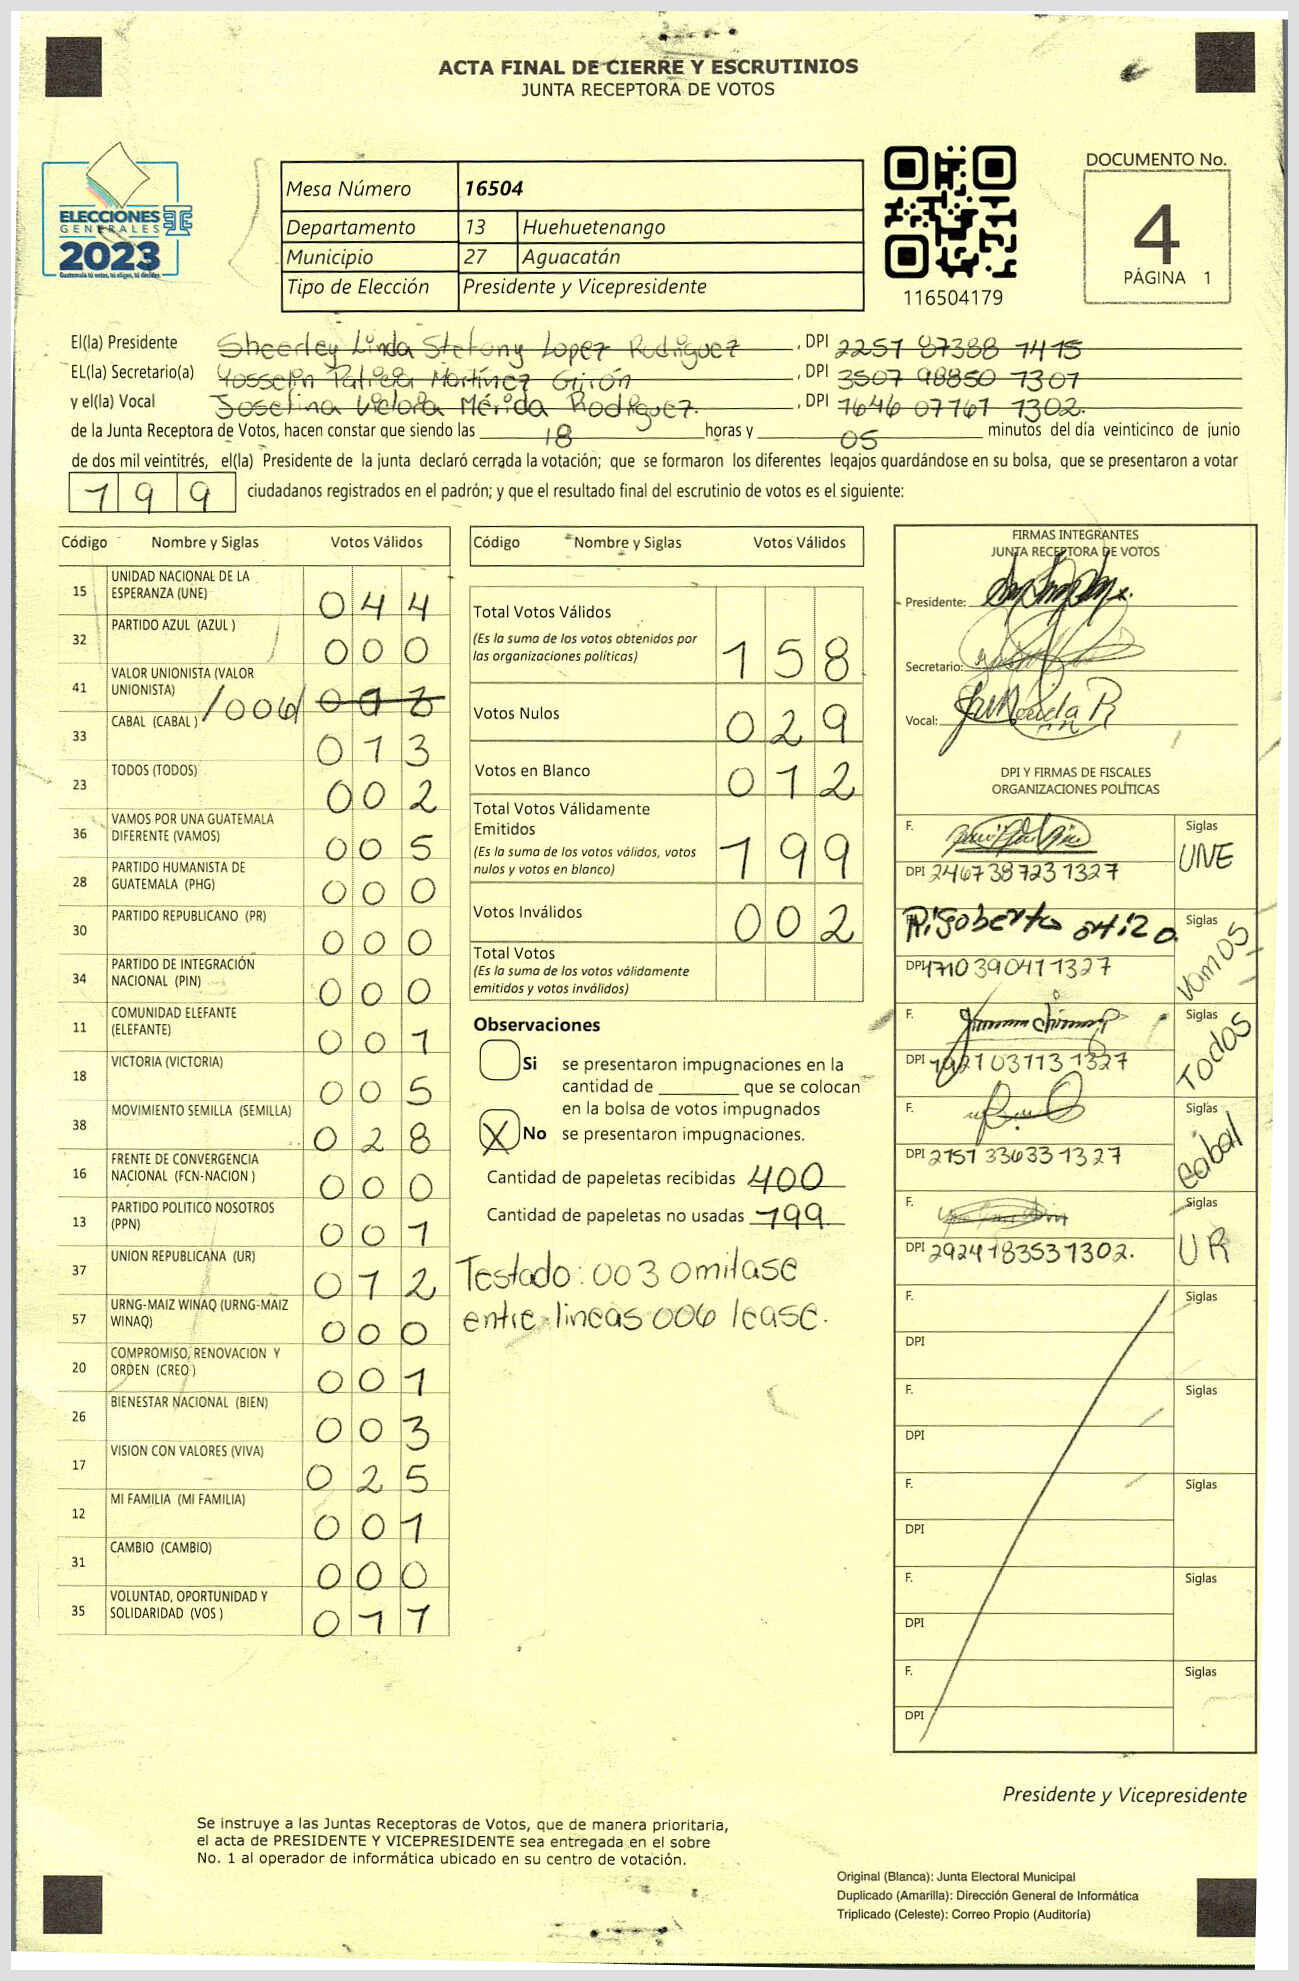 ACTA FINAL DE CIERRE Y ESCRUTINIOS
JUNTA RECEPTORA DE VOTOS
ELECCIONES
GENERALES
2023
Guatemala tú votas, tú eliges, tú decides
Mesa Número 16504
Departamento 13 Huehuetenango
Municipio 27 Aguacatán
Tipo de Elección Presidente y Vicepresidente
116504179
DOCUMENTO No.
4
PÁGINA 1
El(la) Presidente Sheerley Linda Stefany Lopez Rodriguez, DPI 2251 87388 1415
EL(la) Secretario(a) Yosselin Patricia Martínez Girón, DPI 3507 98850 1301
y el(la) Vocal Josefina Victoria Mérida Rodriguez., DPI 1646 07761 1302.
de la Junta Receptora de Votos, hacen constar que siendo las 18 horas y 05 minutos del día veinticinco de junio
de dos mil veintitrés, el(la) Presidente de la junta declaró cerrada la votación; que se formaron los diferentes legajos guardándose en su bolsa, que se presentaron a votar
199 ciudadanos registrados en el padrón; y que el resultado final del escrutinio de votos es el siguiente:
Código Nombre y Siglas Votos Válidos
15 UNIDAD NACIONAL DE LA ESPERANZA (UNE) 044
32 PARTIDO AZUL (AZUL ) 000
41 VALOR UNIONISTA (VALOR UNIONISTA) /006/
33 CABAL (CABAL ) 013
23 TODOS (TODOS) 002
36 VAMOS POR UNA GUATEMALA DIFERENTE (VAMOS) 005
28 PARTIDO HUMANISTA DE GUATEMALA (PHG) 000
30 PARTIDO REPUBLICANO (PR) 000
34 PARTIDO DE INTEGRACIÓN NACIONAL (PIN) 000
11 COMUNIDAD ELEFANTE (ELEFANTE) 001
18 VICTORIA (VICTORIA) 005
38 MOVIMIENTO SEMILLA (SEMILLA) 028
16 FRENTE DE CONVERGENCIA NACIONAL (FCN-NACION ) 000
13 PARTIDO POLITICO NOSOTROS (PPN) 001
37 UNION REPUBLICANA (UR) 012
57 URNG-MAIZ WINAQ (URNG-MAIZ WINAQ) 000
20 COMPROMISO, RENOVACION Y ORDEN (CREO ) 001
26 BIENESTAR NACIONAL (BIEN) 003
17 VISION CON VALORES (VIVA) 025
12 MI FAMILIA (MI FAMILIA) 001
31 CAMBIO (CAMBIO) 000
35 VOLUNTAD, OPORTUNIDAD Y SOLIDARIDAD (VOS ) 011
Código Nombre y Siglas Votos Válidos
Total Votos Válidos 158
(Es la suma de los votos obtenidos por
las organizaciones políticas)
Votos Nulos 029
Votos en Blanco 012
Total Votos Válidamente
Emitidos 199
(Es la suma de los votos válidos, votos
nulos y votos en blanco)
Votos Inválidos 002
Total Votos
(Es la suma de los votos válidamente
emitidos y votos inválidos)
Observaciones
Si se presentaron impugnaciones en la
cantidad de que se colocan
en la bolsa de votos impugnados
X No se presentaron impugnaciones.
Cantidad de papeletas recibidas 400
Cantidad de papeletas no usadas 199
Testado: 003 omitase
entre lineas 006 lease.
FIRMAS INTEGRANTES
JUNTA RECEPTORA DE VOTOS
Presidente:
Secretario:
Vocal:
DPI Y FIRMAS DE FISCALES
ORGANIZACIONES POLÍTICAS
F. Siglas UNE
DPI 2467387231327
F. Rigoberto ortizo Siglas Vamos
DPI 1710390411327
F. Siglas Todos
DPI 1921031131327
F. Siglas Cabal
DPI 2151336331327
F. Siglas UR
DPI 2924183531302.
F. Siglas
DPI
F. Siglas
DPI
F. Siglas
DPI
F. Siglas
DPI
F. Siglas
DPI
Presidente y Vicepresidente
Se instruye a las Juntas Receptoras de Votos, que de manera prioritaria,
el acta de PRESIDENTE Y VICEPRESIDENTE sea entregada en el sobre
No. 1 al operador de informática ubicado en su centro de votación.
Original (Blanca): Junta Electoral Municipal
Duplicado (Amarilla): Dirección General de Informática
Triplicado (Celeste): Correo Propio (Auditoría)